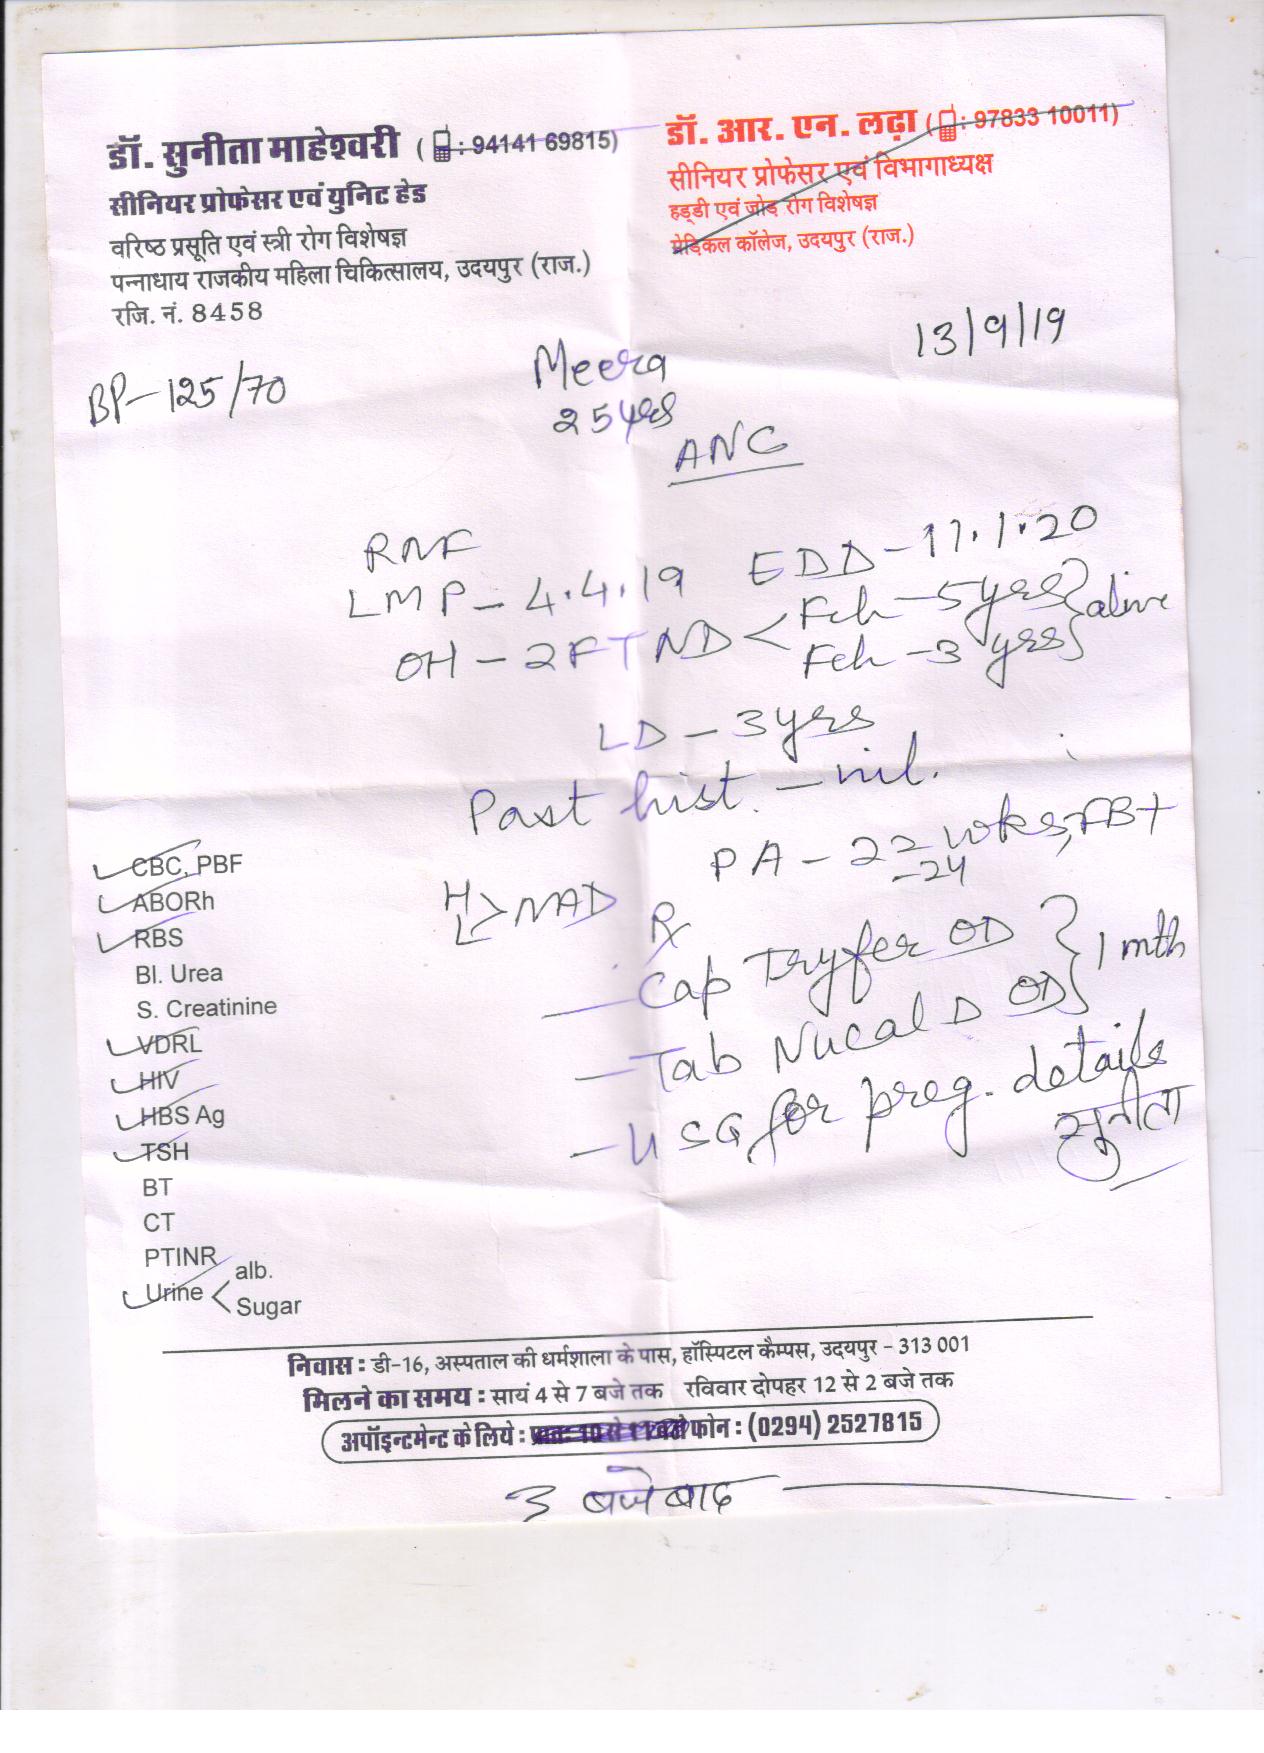 डॉ. सुनीता माहेश्वरी ( : 94141 69815)
सीनियर प्रोफेसर एवं युनिट हेड
वरिष्ठ प्रसूति एवं स्त्री रोग विशेषज्ञ
पन्नाधाय राजकीय महिला चिकित्सालय, उदयपुर (राज.)
रजि. नं. 8458
डॉ. आर. एन. लढ़ा ( : 97833 10011)
सीनियर प्रोफेसर एवं विभागाध्यक्ष
हड्डी एवं जोड़ रोग विशेषज्ञ
मेडिकल कॉलेज, उदयपुर (राज.)
13/9/19
BP - 125/70
Meera
25 yrs
ANC
RMF
LMP - 4.4.19 EDD - 11.1.20
OH - 2 FTND < Fch - 5 yrs } alive
Fch - 3 yrs
LD - 3 yrs
Past hist. - nil.
PA - 22 wks, FB+
-24
H
L > NAD
Rx
- Cap Tryfer OD } 1 mth
- Tab Nucal D OD
- USG for preg. details
सुनीता
CBC, PBF
ABORh
RBS
Bl. Urea
S. Creatinine
VDRL
HIV
HBS Ag
TSH
BT
CT
PTINR
Urine < alb.
Sugar
निवास : डी-16, अस्पताल की धर्मशाला के पास, हॉस्पिटल कैम्पस, उदयपुर - 313 001
मिलने का समय : सायं 4 से 7 बजे तक रविवार दोपहर 12 से 2 बजे तक
अपॉइन्टमेन्ट के लिये : प्रातः 10 से 11 बजे फोन : (0294) 2527815
3 बजे बाद